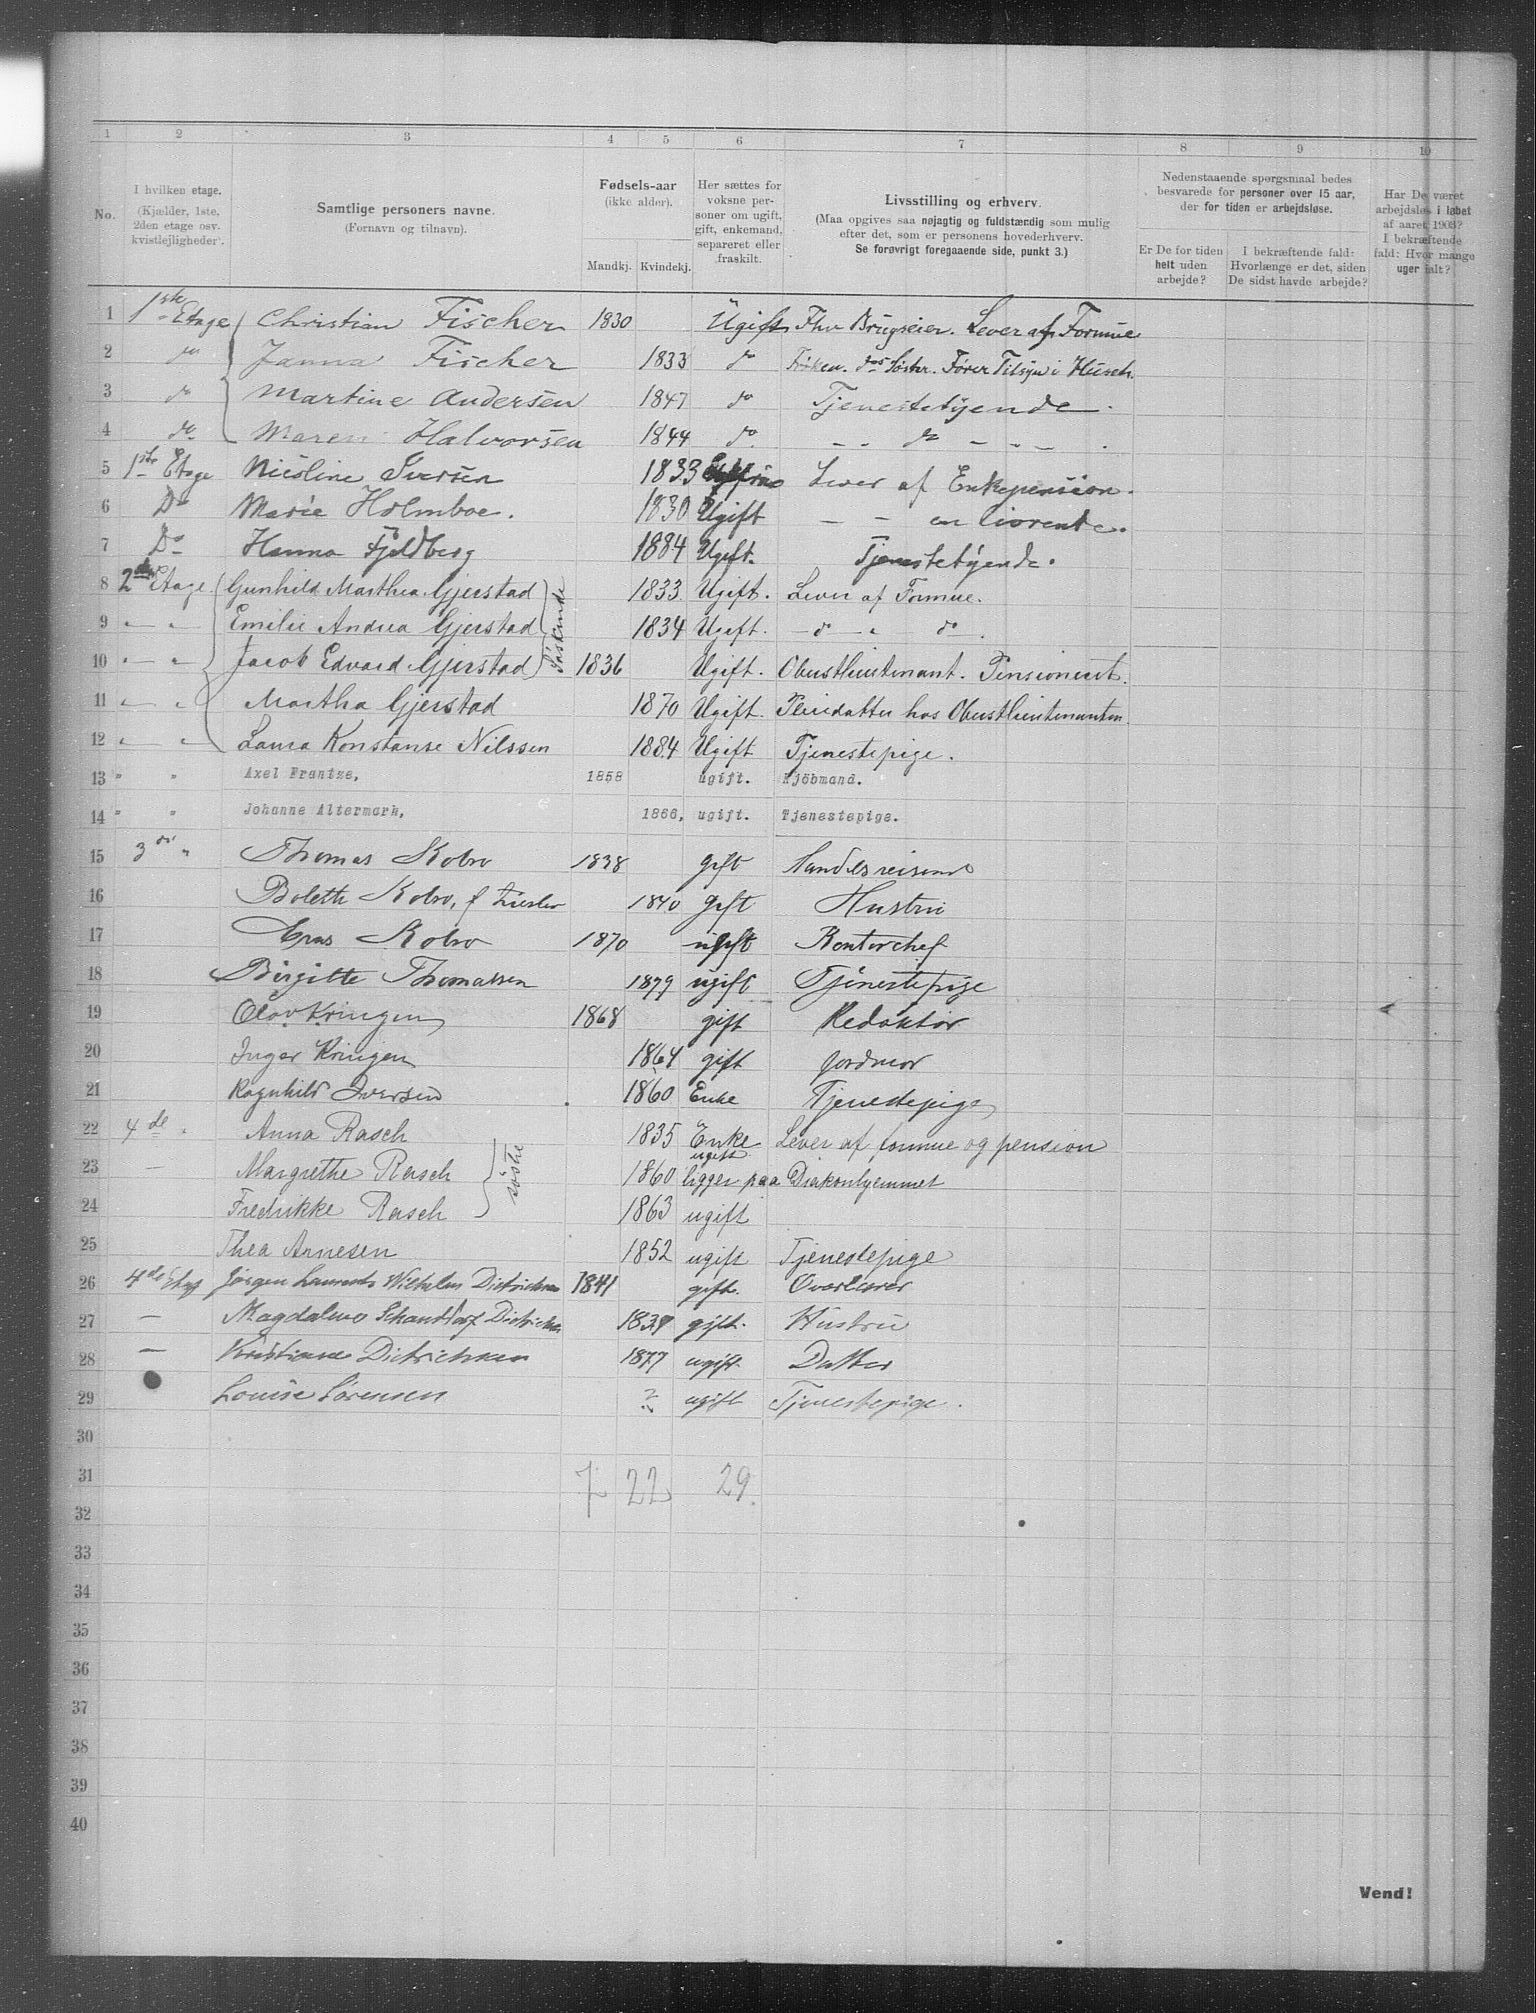 1 2 3 4 5 6 7 8 9 10
No.
I hvilken etage.
(Kjælder, 1ste,
2den etage osv.
kvistlejligheder).
Samtlige personers navne.
(Fornavn og tilnavn).
Fødsels-aar
(ikke alder).
Mandkj. Kvindekj.
Her sættes for
voksne per-
soner om ugift,
gift, enkemand,
separeret eller
fraskilt.
Livsstilling og erhverv.
(Maa opgives saa nøjagtig og fuldstændig som mulig
efter det, som er personens hovederhverv.
Se forøvrigt foregaaende side, punkt 3.)
Nedenstaaende spørgsmaal bedes
besvarede for personer over 15 aar,
der for tiden er arbejdsløse.
Er De for tiden
helt uden
arbejde?
I bekræftende fald:
Hvorlænge er det, siden
De sidst havde arbejde?
Har De været
arbejdsløs i løbet
af aaret 1903?
I bekræftende
fald: Hvor mange
uger ialt?
1 1ste Etage Christian Fischer 1830 Ugift Fhv Brugseier. Lever af Formue
2 do Janna Fischer 1833 do Frøken. dos Søster. Fører Tilsyn i Huset.
3 do Martine Andersen 1847 do Tjenestetyende.
4 do Maren Halvorsen 1844 do. – – do – – – .
5 1ste Etage Nicoline Iversen 1833 Lever af Enkepension.
6 Do Marie Holmboe. 1830 Ugift – – en livrente.
7 Do Hanna Fjeldberg 1884 Ugift. Tjenestetyende.
8 2den Etage Gunhild Marthea Gjerstad 1833 Ugift. Lever af Formue.
9 " — " Emilie Andrea Gjerstad 1834 Ugift. — do — " do — .
10 " — " Jacob Edvard Gjerstad Søskende 1836 Ugift. Oberstlieutenant. Pensioneret.
11 " — " Martha Gjerstad 1870 Ugift. Pleiedatter hos Oberstlieutenanten
12 " " Laura Konstanse Nilssen 1884 Ugift Tjenestepige.
13 " " Axel Frantze, 1858 ugift. Kjöbmand.
14 " " Johanne Altermark, 1866, ugift. Tjenestepige.
15 3die " Thomas Kobro 1838 gift Handelsreisende
16 Boleth Kobro, f. 1840 gift Hustru
17 Kobro 1870 ugift Kontorchef
18 Birgitte Thomassen 1879 ugift Tjenestepige
19 Olav Kringen 1868 gift Redaktør
20 Inger Kringen 1864 gift Jordmor
21 Ragnhild Iversen 1860 Enke Tjenestepige
22 4de " Anna Rasch 1835 Enke Lever af formue og pension
23 — Margrethe Rasch søstre 1860 ugift ligger paa Diakonhjemmet
24 Fredrikke Rasch 1863 ugift
25 Thea Arnesen 1852 ugift Tjenestepige
26 4de Etag Jørgen Laurents Wilhelm Dietrichson 1841 gift. Overlærer
27 — Magdalene Dietrichson 1839 gift. Hustru
28 — Kristiane Dietrichson 1877 ugift Datter
29 Louise Sørensen ? ugift Tjenestepige.
30
31 7 22 29.
32
33
34
35
36
37
38
39
40
Vend!